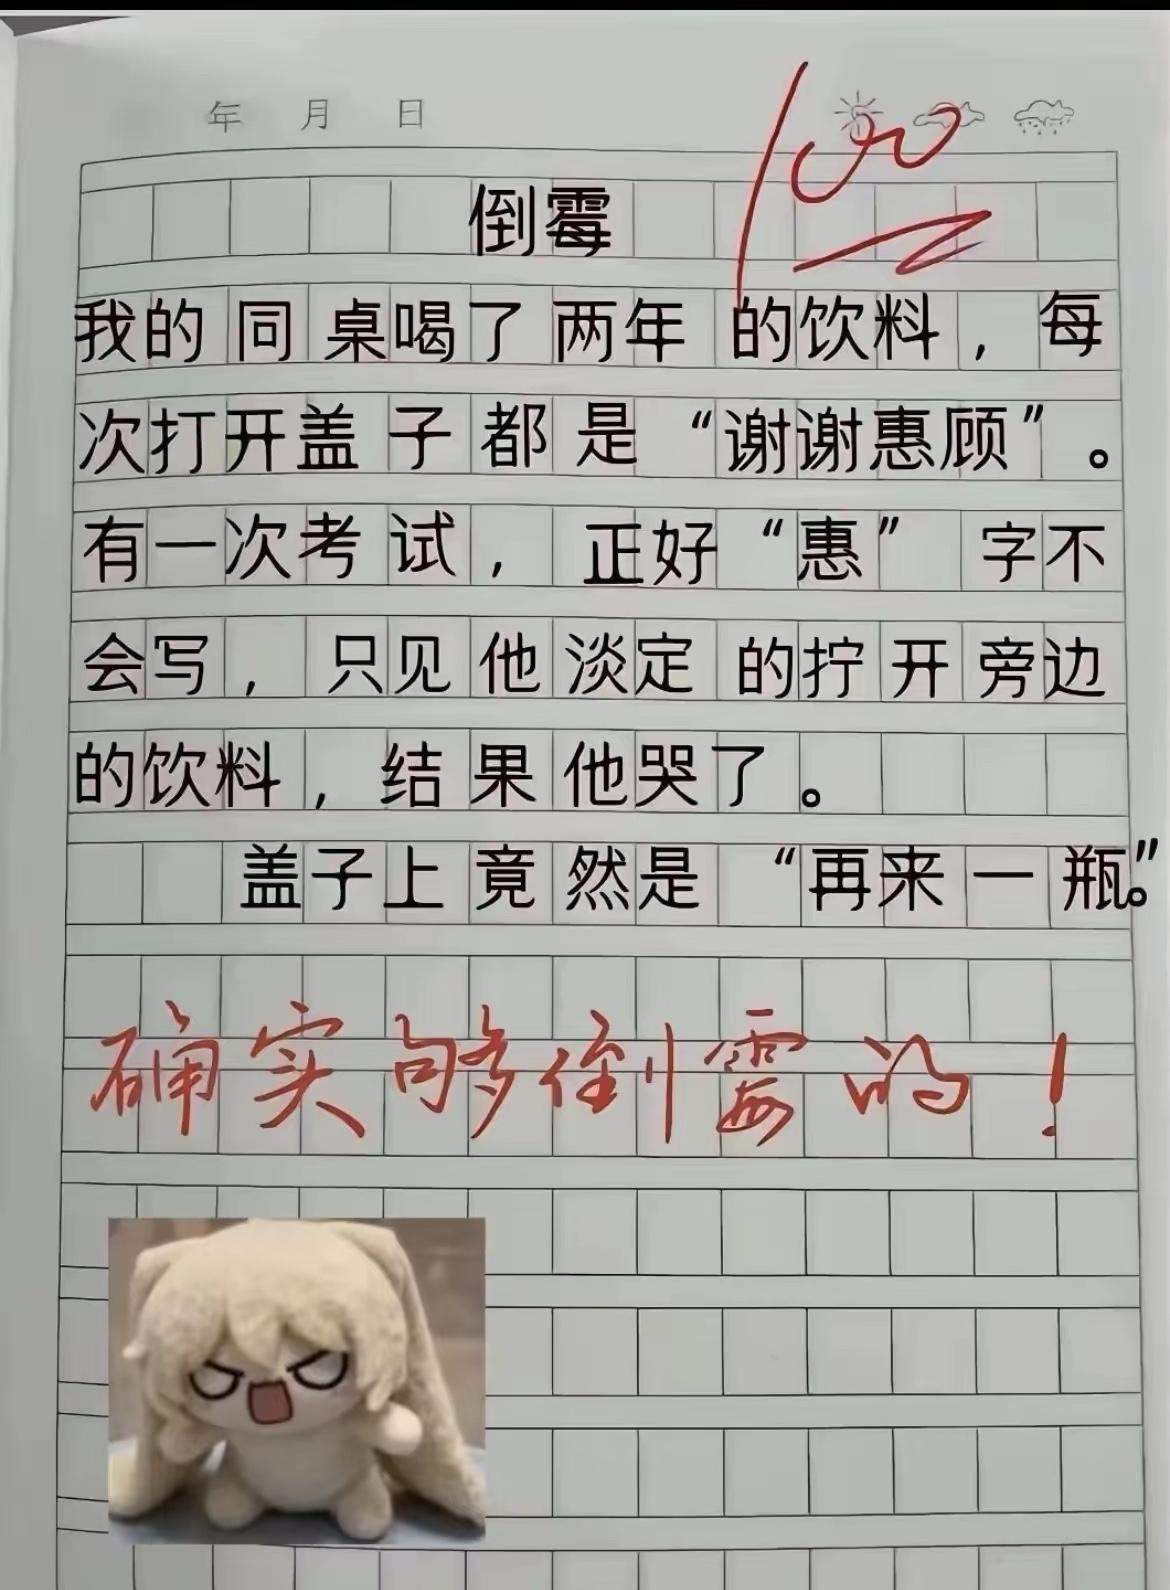 年 月 日
100
倒霉
我的同桌喝了两年的饮料，每
次打开盖子都是“谢谢惠顾”。
有一次考试，正好“惠”字不
会写，只见他淡定的拧开旁边
的饮料，结果他哭了。
盖子上竟然是“再来一瓶”。
确实够倒霉的！